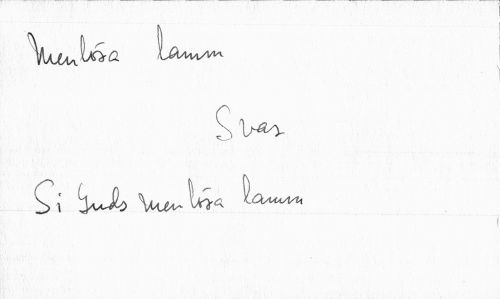 Menlösa lamm
Svar
Si Guds menlösa lamm